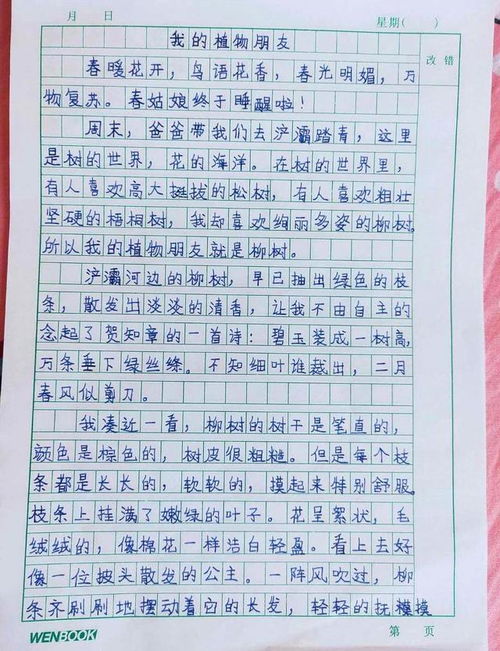 月 日 星期( )
改错
我的植物朋友
春暖花开，鸟语花香，春光明媚，万
物复苏。春姑娘终于睡醒啦！
周末，爸爸带我们去浐灞踏青，这里
是树的世界，花的海洋。在树的世界里，
有人喜欢高大挺拔的松树，有人喜欢粗壮
坚硬的梧桐树，我却喜欢绚丽多姿的柳树。
所以我的植物朋友就是柳树。
浐灞河边的柳树，早已抽出绿色的枝
条，散发出淡淡的清香，让我不由自主的
念起了贺知章的一首诗：碧玉装成一树高，
万条垂下绿丝绦。不知细叶谁裁出，二月
春风似剪刀。
我凑近一看，柳树的树干是笔直的，
颜色是棕色的，树皮很粗糙。但是每个枝
条都是长长的，软软的，摸起来特别舒服。
枝条上挂满了嫩绿的叶子。花呈絮状，毛
绒绒的，像棉花一样洁白轻盈。看上去好
像一位披头散发的公主。一阵风吹过，柳
条齐刷刷地摆动着它的长发，轻轻的抚模摸
WENBOOK 第 页